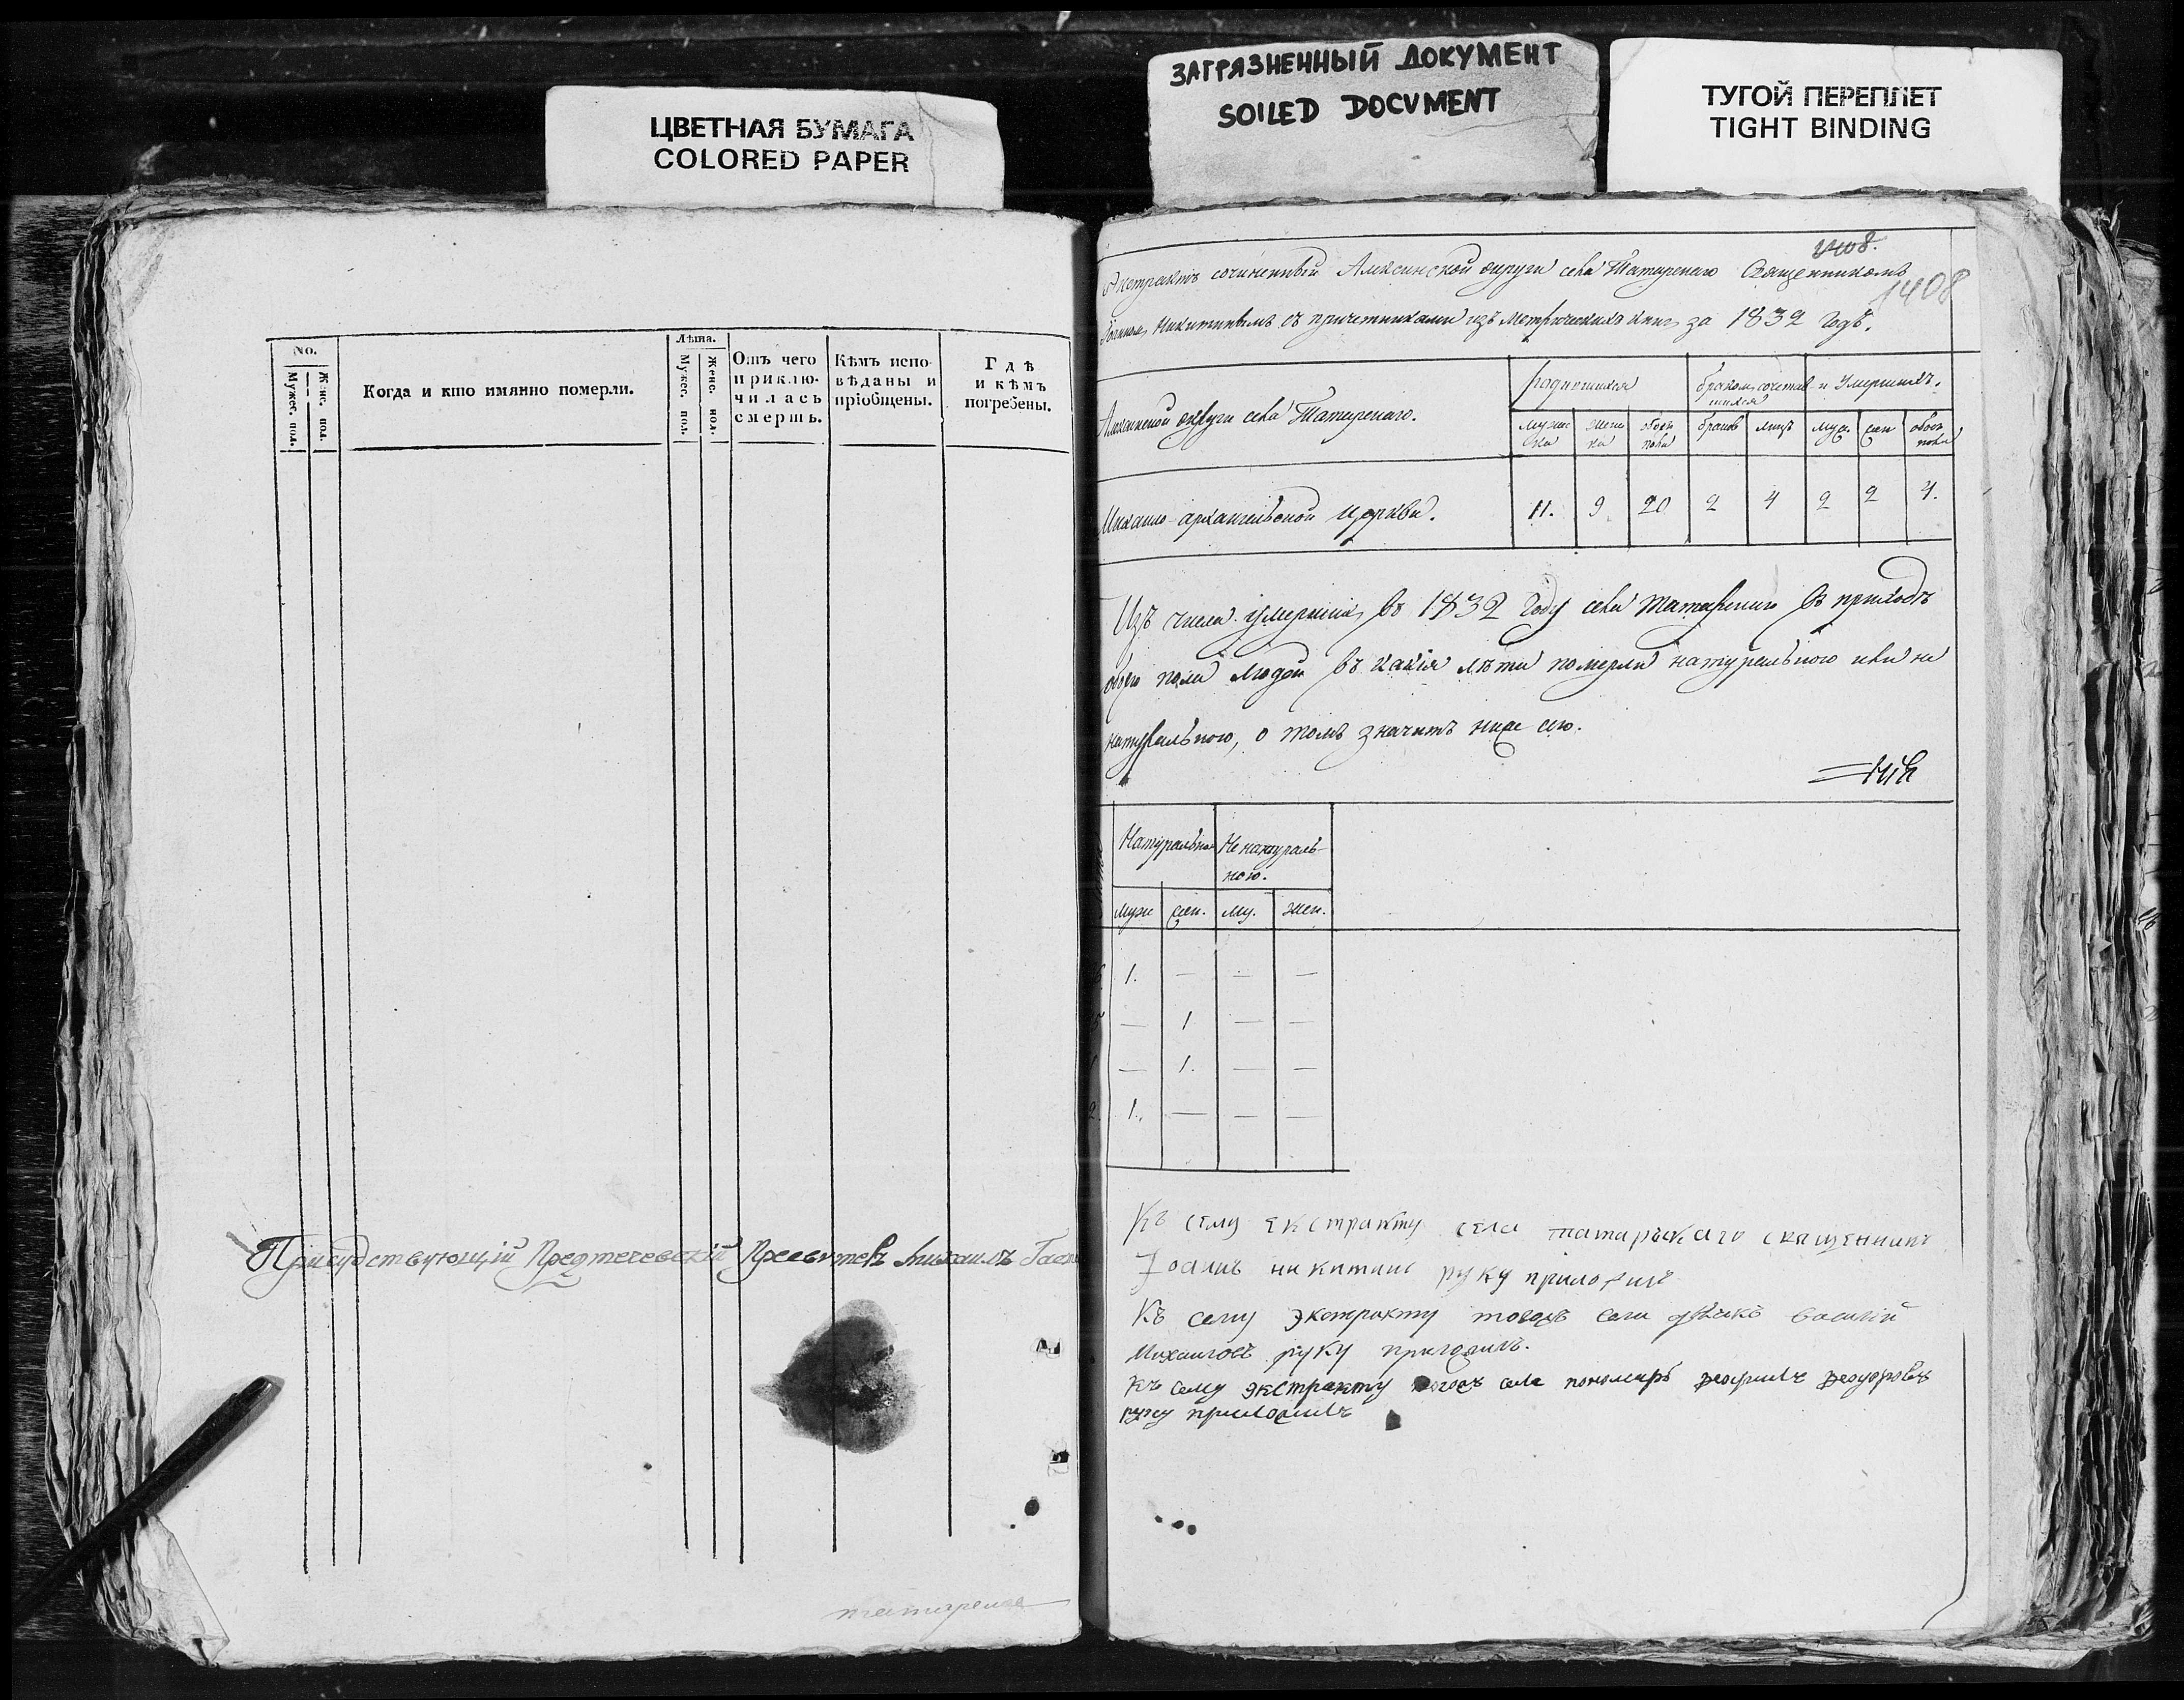 ЦВЕТНАЯ БУМАГА
COLORED PAPER
ЗАГРЯЗНЕННЫЙ ДОКУМЕНТ
SOILED DOCUMENT
ТУГОЙ ПЕРЕПЛЕТ
TIGHT BINDING
No.
Мужес. пол.
Женс. пол.
Когда и кто имянно померли.
Лѣта.
Мужес. пол.
Женс. пол.
Отъ чего приключилась смерть.
Кѣмъ исповѣданы и пріобщены.
Гдѣ и кѣмъ погребены.
Присудствующій Предтечевскій Пресвитеръ Михаилъ
татарское
1408
Экстрактъ сочиненный Алексинской округи села Татарскаго Священникомъ
Никитинымъ съ причетниками изъ Метрическихъ книгъ за 1832 годъ.
Алексинской округи села Татарскаго.
родившихся
бракомъ сочетавшихся
и умершихъ.
мужеска
женска
обоего пола
браковъ
лицъ
муж.
жен
обоего пола
Михаило-архангельской церкви.
11. 9. 20 2 4 2 2 4.
Изъ числа умершихъ въ 1832 году села татарскаго въ приходѣ
обоего пола людей въ какія лѣта померли натуральною или не
натуральною, о томъ значитъ ниже сего.
Натуральною
Не натуральною.
муж жен. му. жен.
1. — — —
— 1 — —
— 1. — —
1. — — —
Къ сему екстракту села татарьскаго священникъ
Іоаннъ никитинъ руку приложилъ
Къ сему экстракту тогожъ села дьячекъ василій
Михаиловъ руку приложилъ.
Къ сему экстракту тогожъ села пономарь феодоровъ
руку приложилъ